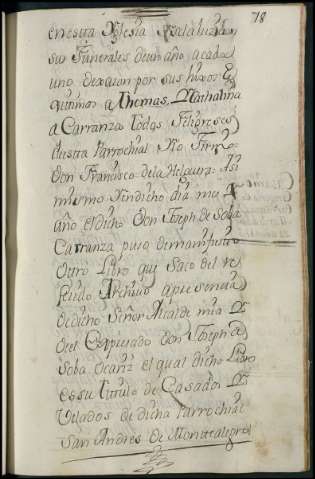 78
en esta Yglesia
sus funerales de un año a cada
uno dexaron por sus hixos Le
gitimos a Thomas, Mathalina
a Carranza todos feligreses
de esta Parrochial Rio Tirón
Don Francisco de la Helguera: Asi
mismo en dicho dia mes y
año el dicho Don Joseph de Soba
Carranza puso de manifiesto
Otro Libro que Saco del re
ferido Archivo a presencia
de dicho Señor Alcalde mia y
de el Capitulado Don Joseph de
Soba Ocariz el qual dicho Libro
es su titulo de Casados y
Velados de dicha Parrochial
San Andres de Monttealegre